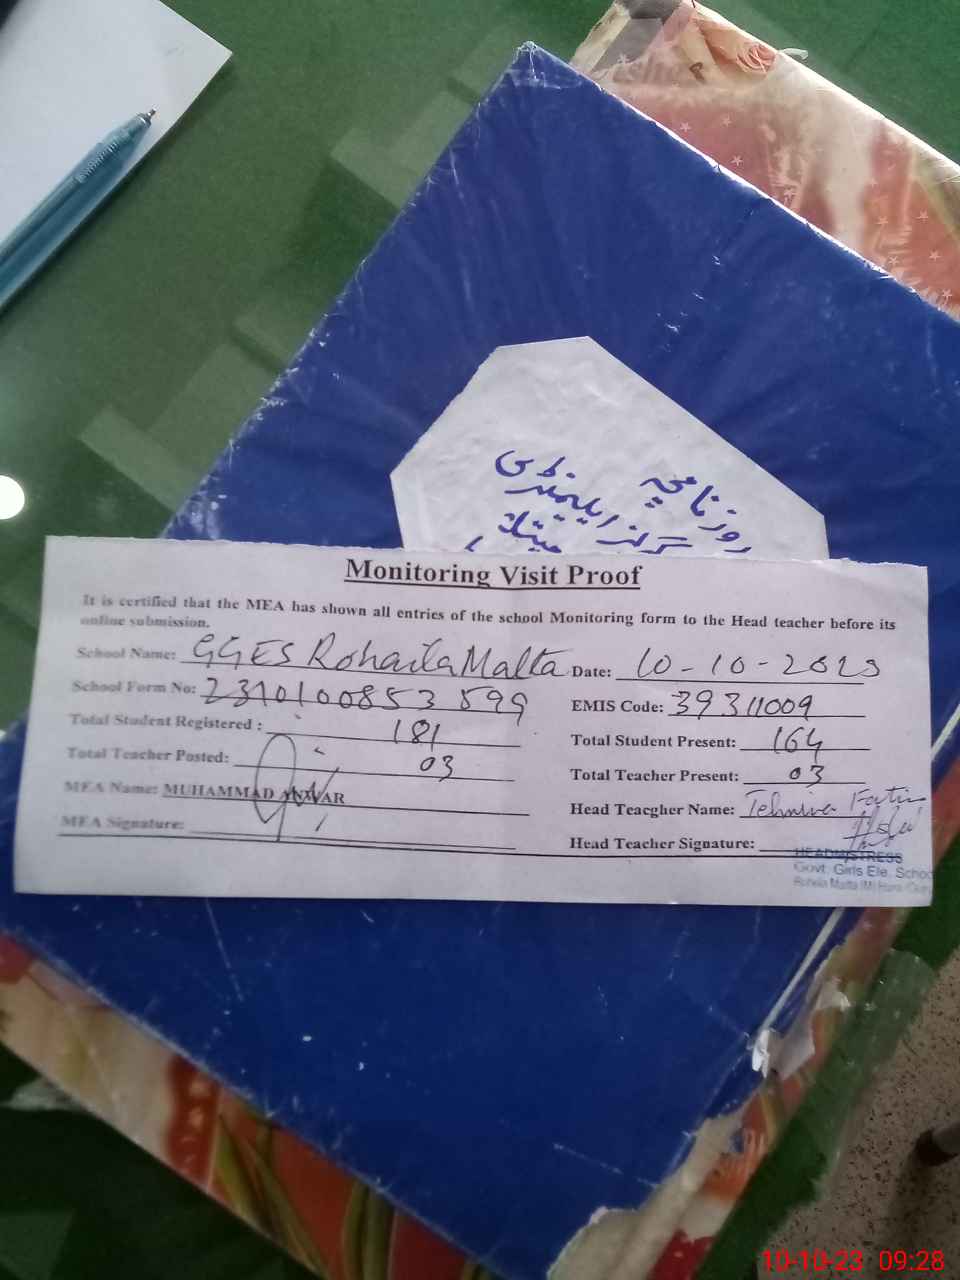 روزنامچہ
مرکز ایلیمنٹری
Monitoring Visit Proof
It is certified that the MEA has shown all entries of the school Monitoring form to the Head teacher before its
online submission.
School Name: GGES Rohaila Malta Date: 10-10-2023
School Form No: 2310100853599 EMIS Code: 39311009
Total Student Registered : 181 Total Student Present: 164
Total Teacher Posted: 03 Total Teacher Present: 03
MEA Name: MUHAMMAD ANWAR Head Teacgher Name: Tehmina
MEA Signature: Head Teacher Signature:
HEADMISTRESS
Govt. Girls Ele. Schoo
Rohela Malta (M)
10-10-23 09:28